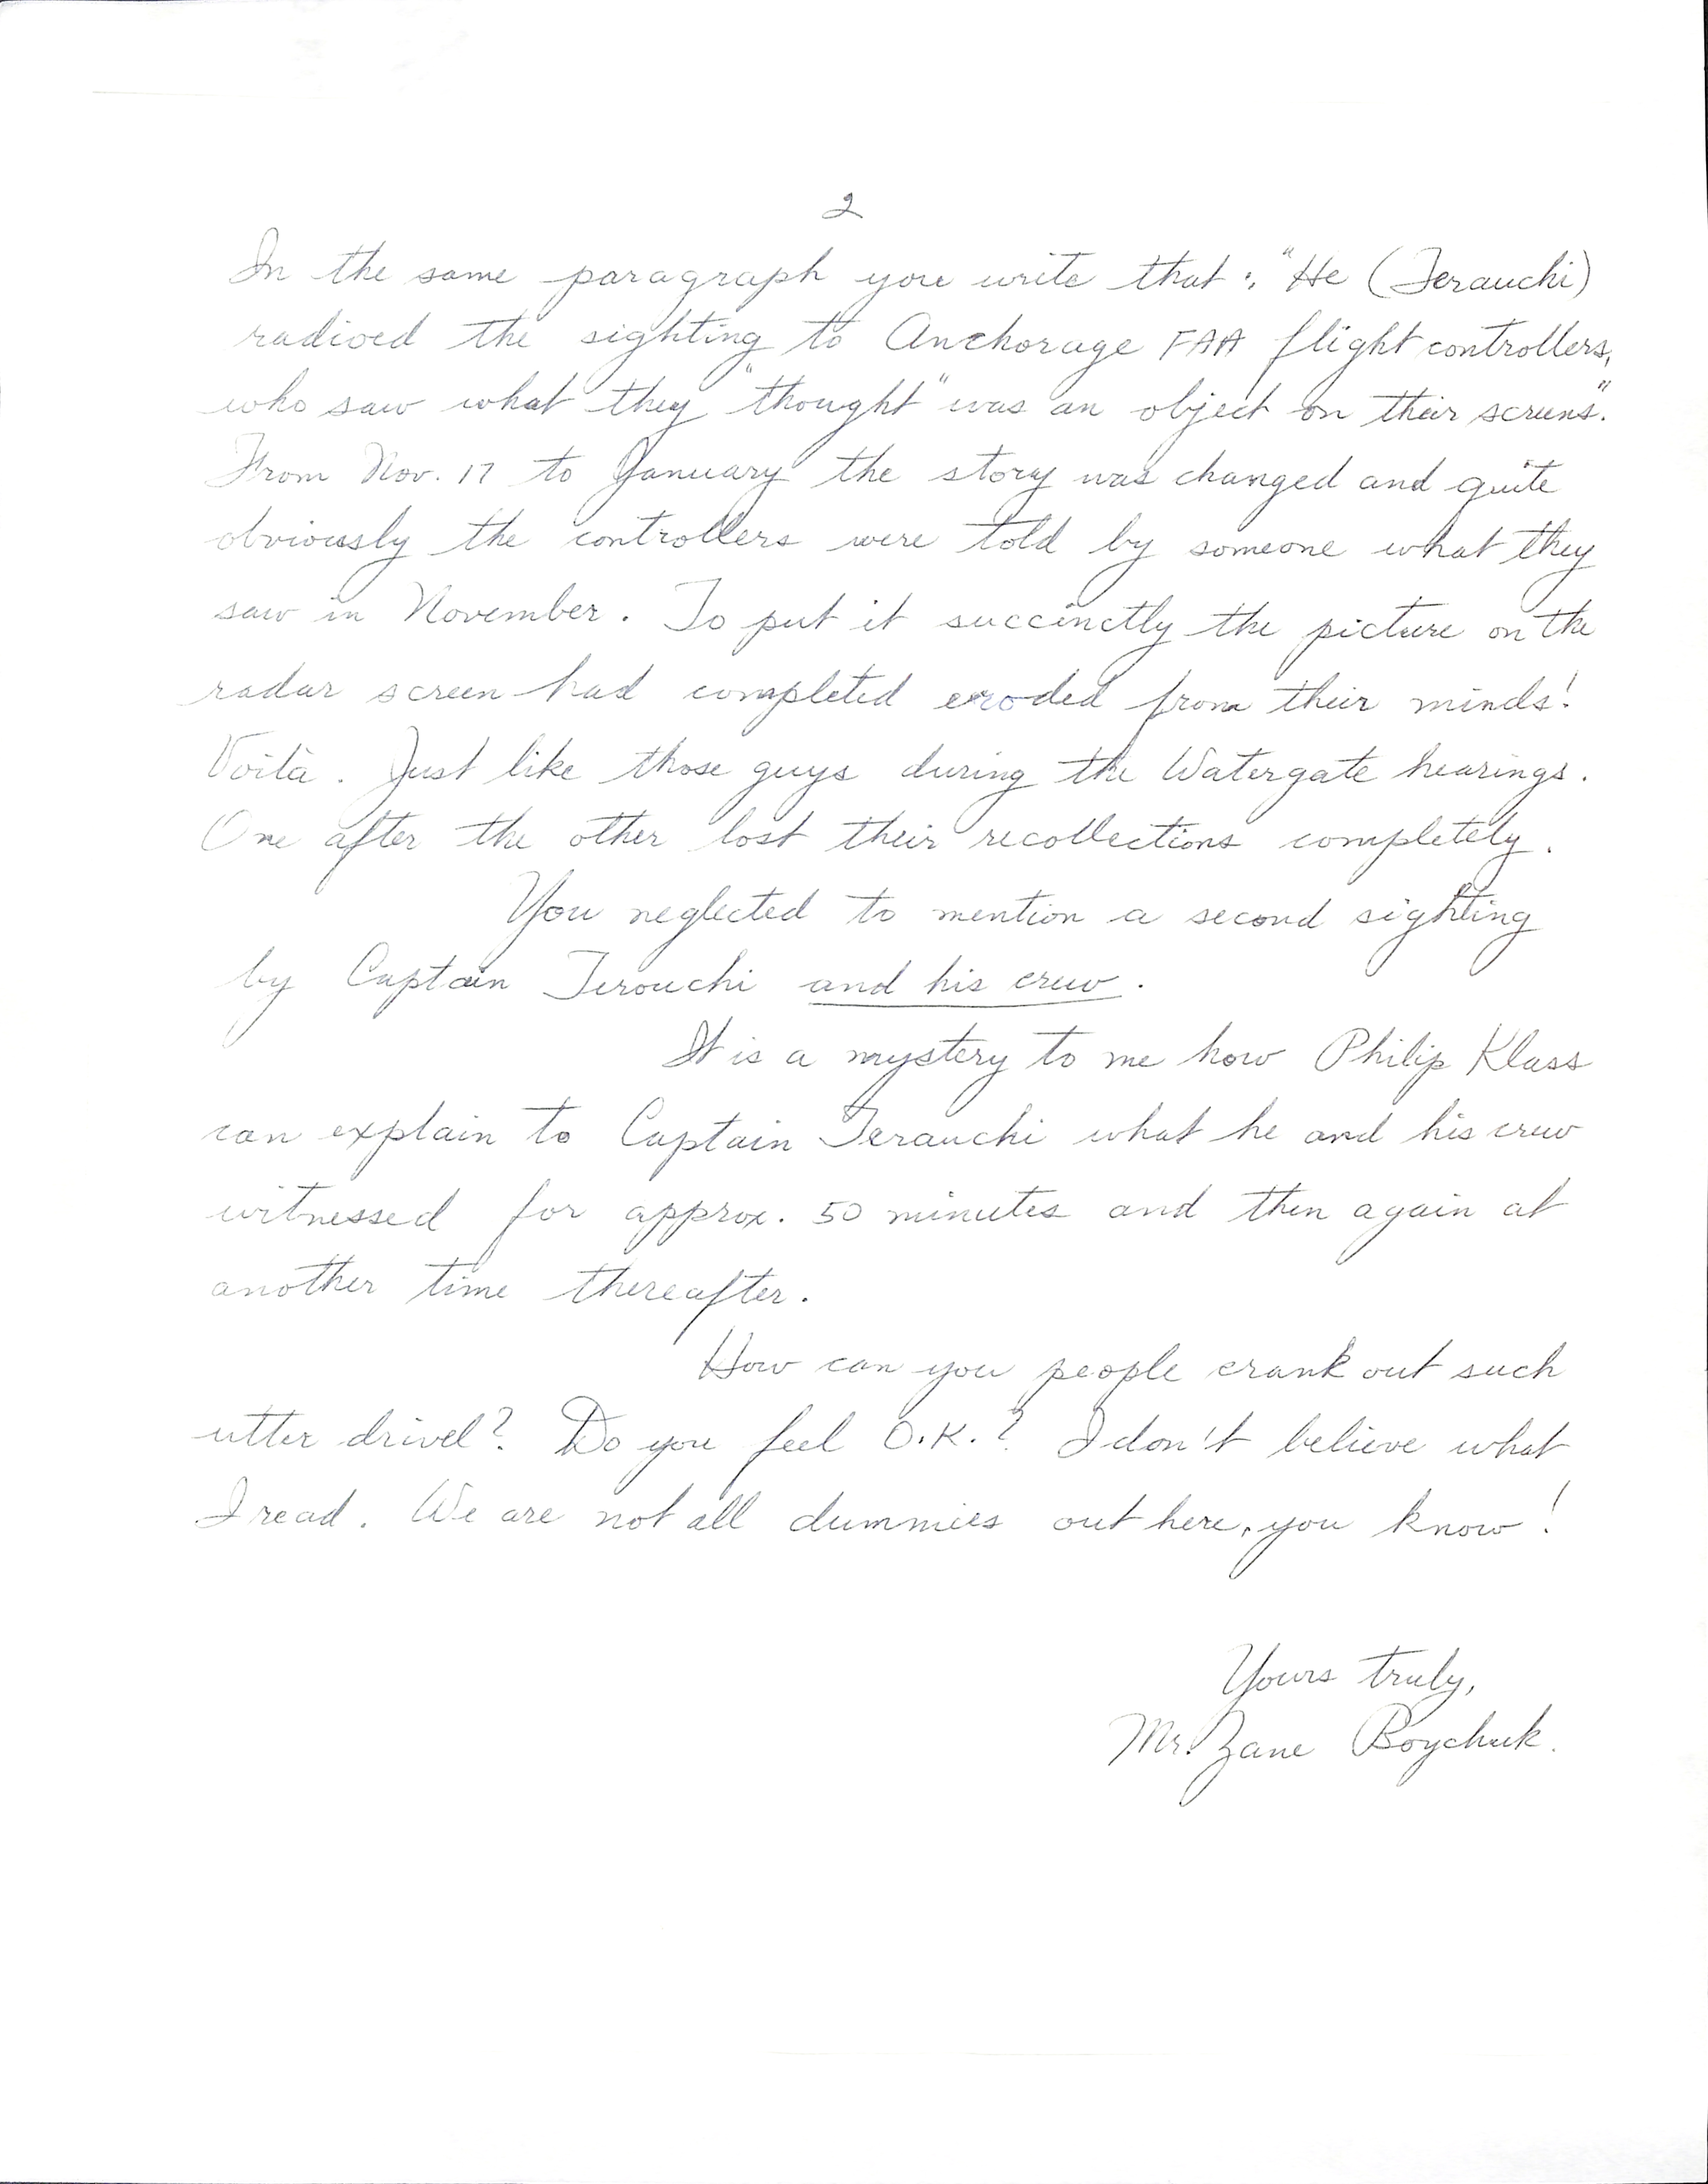 2
In the same paragraph you write that: "He (Terauchi)
radioed the sighting to Anchorage FAA flight controllers,
who saw what they "thought" was an object on their screens".
From Nov. 17 to January the story was changed and quite
obviously the controllers were told by someone what they
saw in November. To put it succinctly the picture on the
radar screen had completed eroded from their minds!
Voilà. Just like those guys during the Watergate hearings.
One after the other lost their recollections completely.
You neglected to mention a second sighting
by Captain Terouchi and his crew.
It is a mystery to me how Philip Klass
can explain to Captain Terauchi what he and his crew
witnessed for approx. 50 minutes and then again at
another time thereafter.
How can you people crank out such
utter drivel? Do you feel O.K.? I don't believe what
I read. We are not all dummies out here, you know!
Yours truly,
Mr. Zane Boychuk.